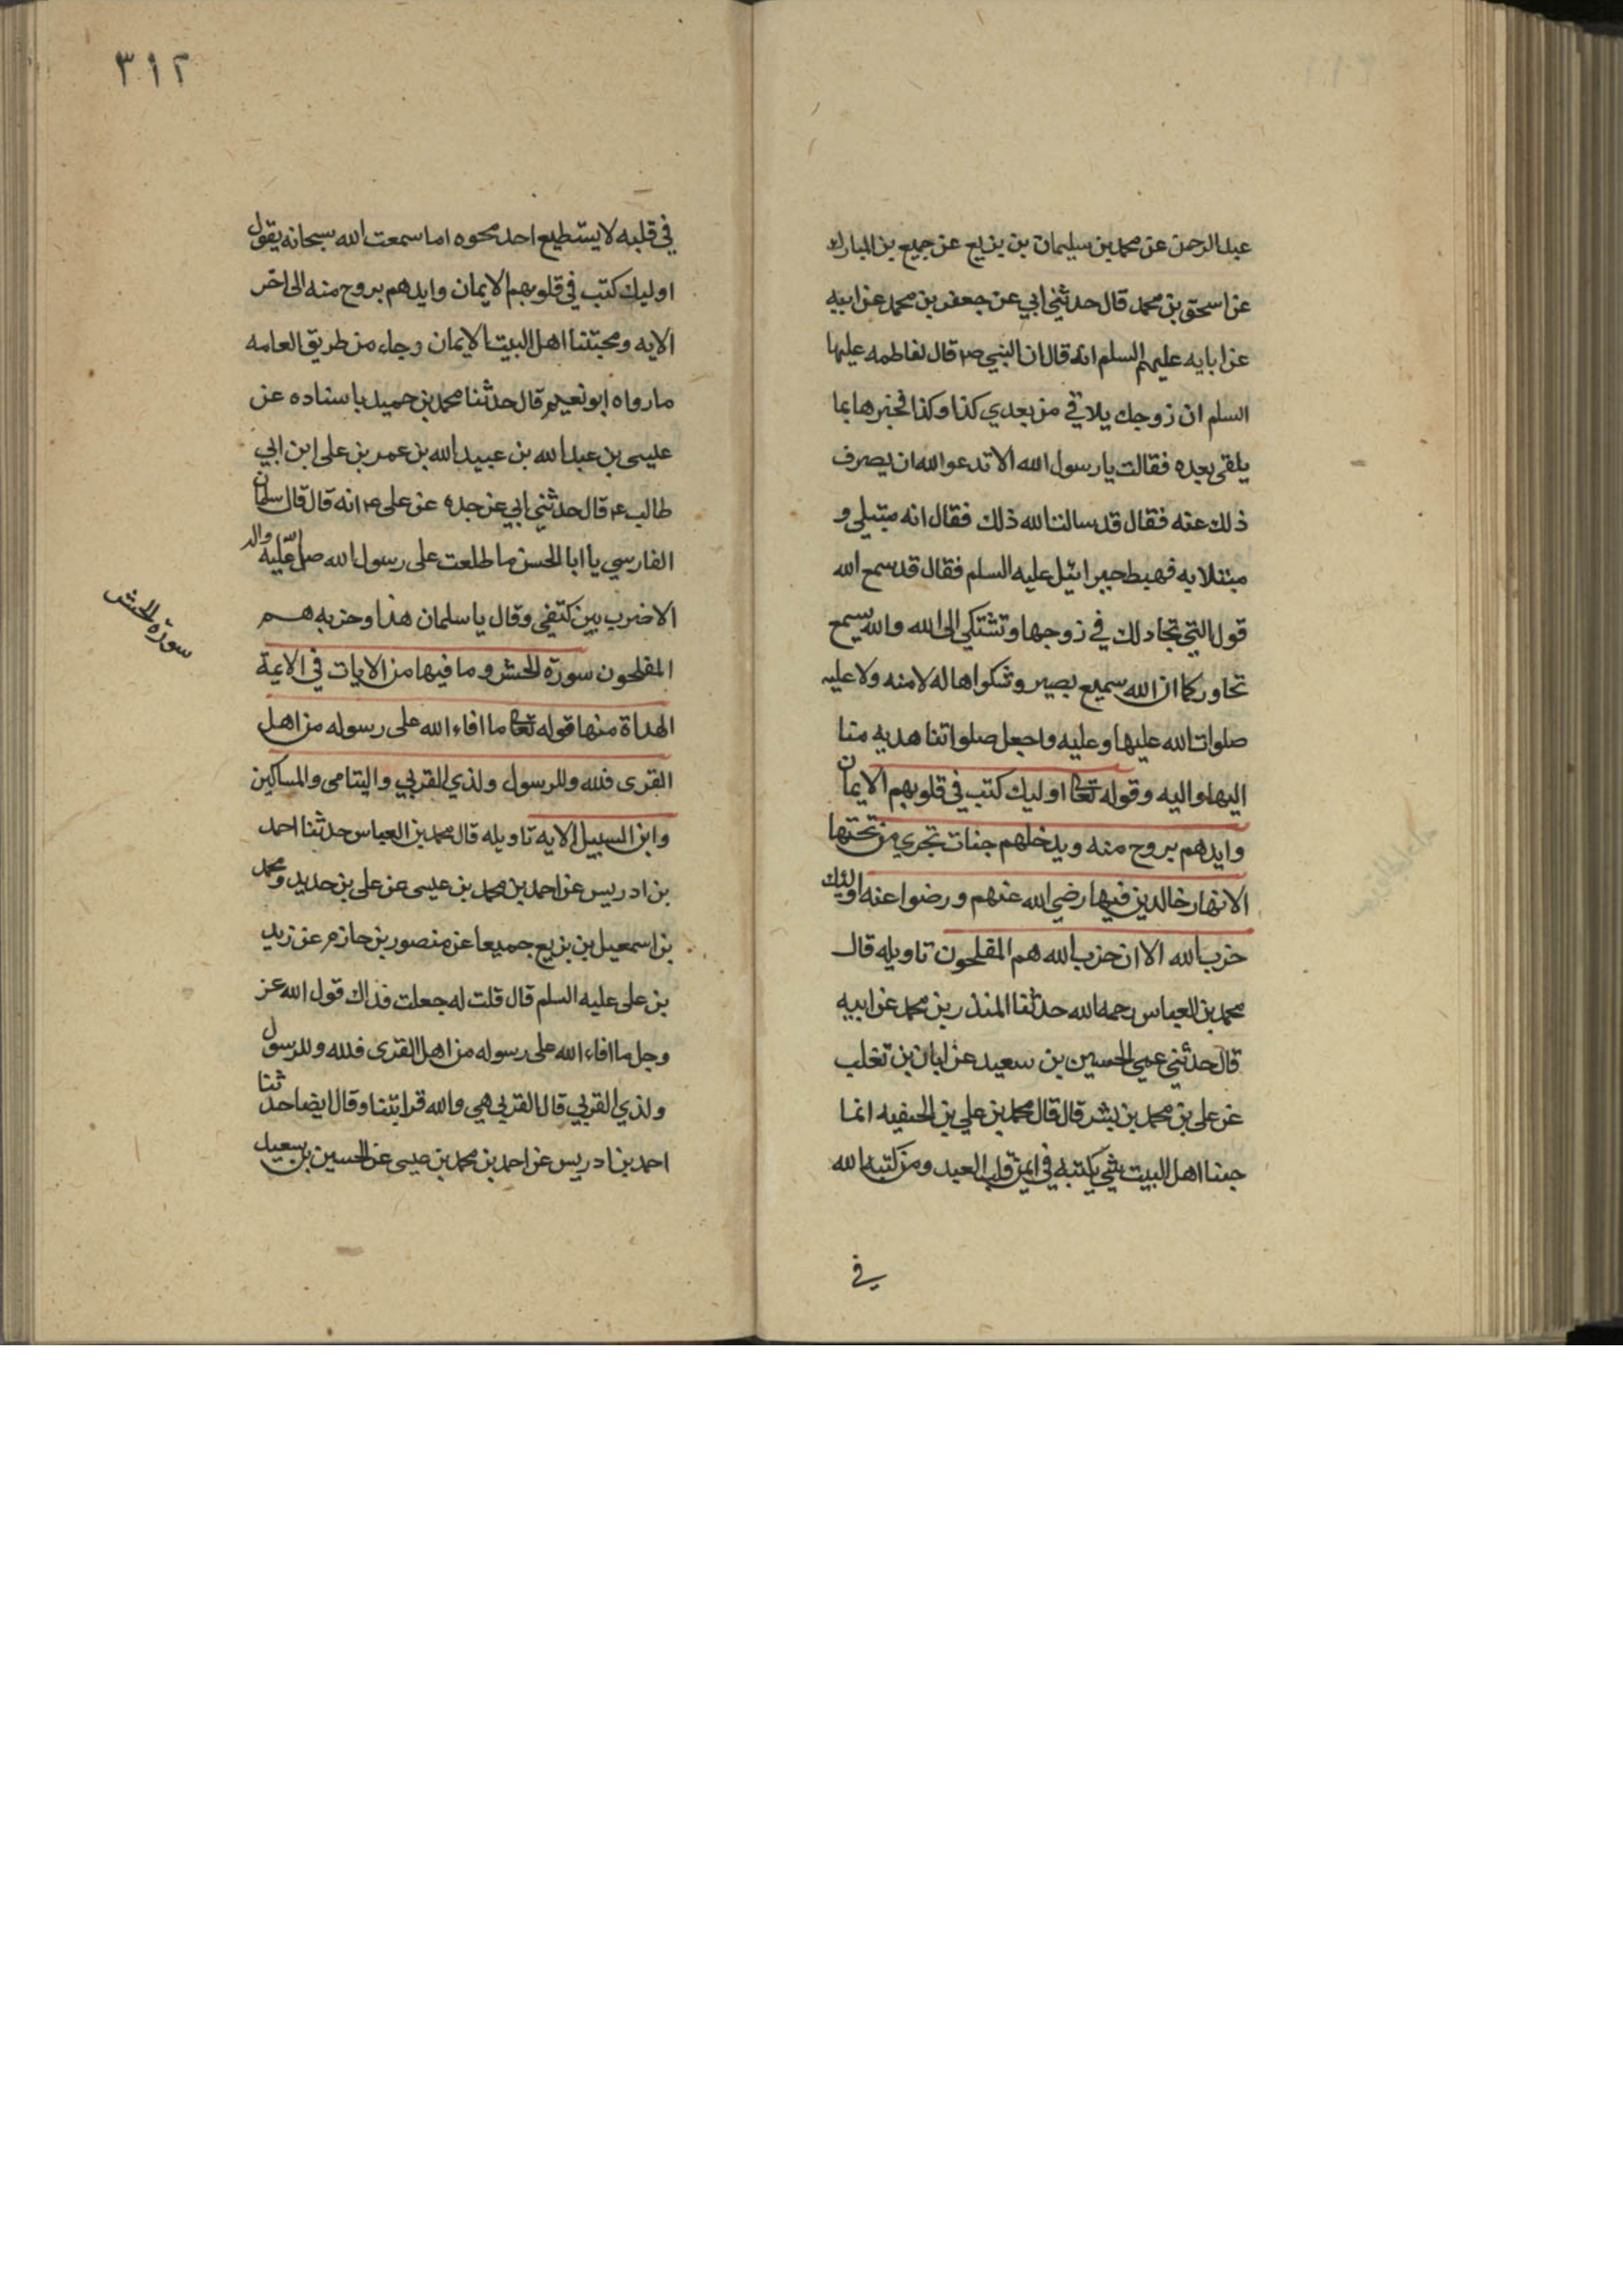 عبد الرحمن عن محمد بن سليمان بن بزيع عن جميع بن المبارك
عن اسحق بن محمد قال حدثني ابي عن جعفر بن محمد عن ابيه
عن ابايه عليهم السلم انه قال ان النبي ص قال لفاطمه عليها
السلم ان زوجك يلاقي من بعدي كذا وكذا فخبرها بما
يلقى بعده فقالت يا رسول الله الا تدعو الله ان يصرف
ذلك عنه فقال قد سالت الله ذلك فقال انه مبتلى و
مبتلا به فهبط جبرائيل عليه السلم فقال قد سمع الله
قول التي تجادلك في زوجها وتشتكي الى الله والله يسمع
تحاوركما ان الله سميع بصير وشكواها له لا منه ولا عليه
صلوات الله عليها وعليه واجعل صلواتنا هديه منا
اليها واليه وقوله تعا اوليك كتب في قلوبهم الايمان
وايدهم بروح منه ويدخلهم جنات تجري من تحتها
الانهار خالدين فيها رضي الله عنهم ورضوا عنه اوليك
حزب الله الا ان حزب الله هم المفلحون تاويله قال
محمد بن العباس رحمه الله حدثنا المنذر بن محمد عن ابيه
قال حدثني عمي الحسين بن سعيد عن ابان بن تغلب
عن علي بن محمد بن بشر قال قال محمد بن علي بن الحنفيه انما
حبنا اهل البيت شي يكتبه في ايمن قلب العبد ومن كتبه الله
في
٣١٢
في قلبه لا يستطيع احد محوه اما سمعت الله سبحانه يقول
اوليك كتب في قلوبهم الايمان وايدهم بروح منه الى اخر
الايه ومحبتنا اهل البيت الايمان وجاء من طريق العامه
ما رواه ابو نعيم قال حدثنا محمد بن حميد باسناده عن
عيسى بن عبد الله بن عبيد الله بن عمر بن على ابن ابي
طالب ع قال حدثني ابي عن جده عن على ع انه قال قال سلمان
الفارسي يا ابا الحسن ما طلعت على رسول الله صلى الله عليه واله
الا ضرب بين كتفي وقال يا سلمان هذا وحزبه هم
المفلحون سورة الحشر وما فيها من الايات في الايمة
الهداة منها قوله تعا ما افاء الله على رسوله من اهل
القرى فلله وللرسول ولذي القربي واليتامى والمساكين
وابن السبيل الايه تاويله قال محمد بن العباس حدثنا احمد
بن ادريس عن احمد بن محمد بن عيسى عن على بن حديد ومحمد
بن اسمعيل بن بزيع جميعا عن منصور بن حازم عن زيد
بن على عليه السلم قال قلت له جعلت فداك قول الله عز
وجل ما افاء الله على رسوله من اهل القرى فلله وللرسول
ولذي القربي قال القربي هي والله قرابتنا وقال ايضا حدثنا
احمد بن ادريس عن احمد بن محمد بن عيسى عن الحسين بن سعيد
سورة الحشر